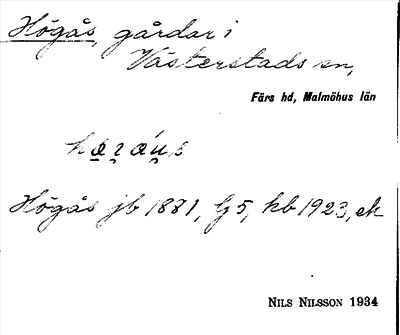 Högås, gårdar i
Västerstads sn,
Färs hd, Malmöhus län
Högås jb 1881, G5, kb 1923, ek
NILS NILSSON 1934